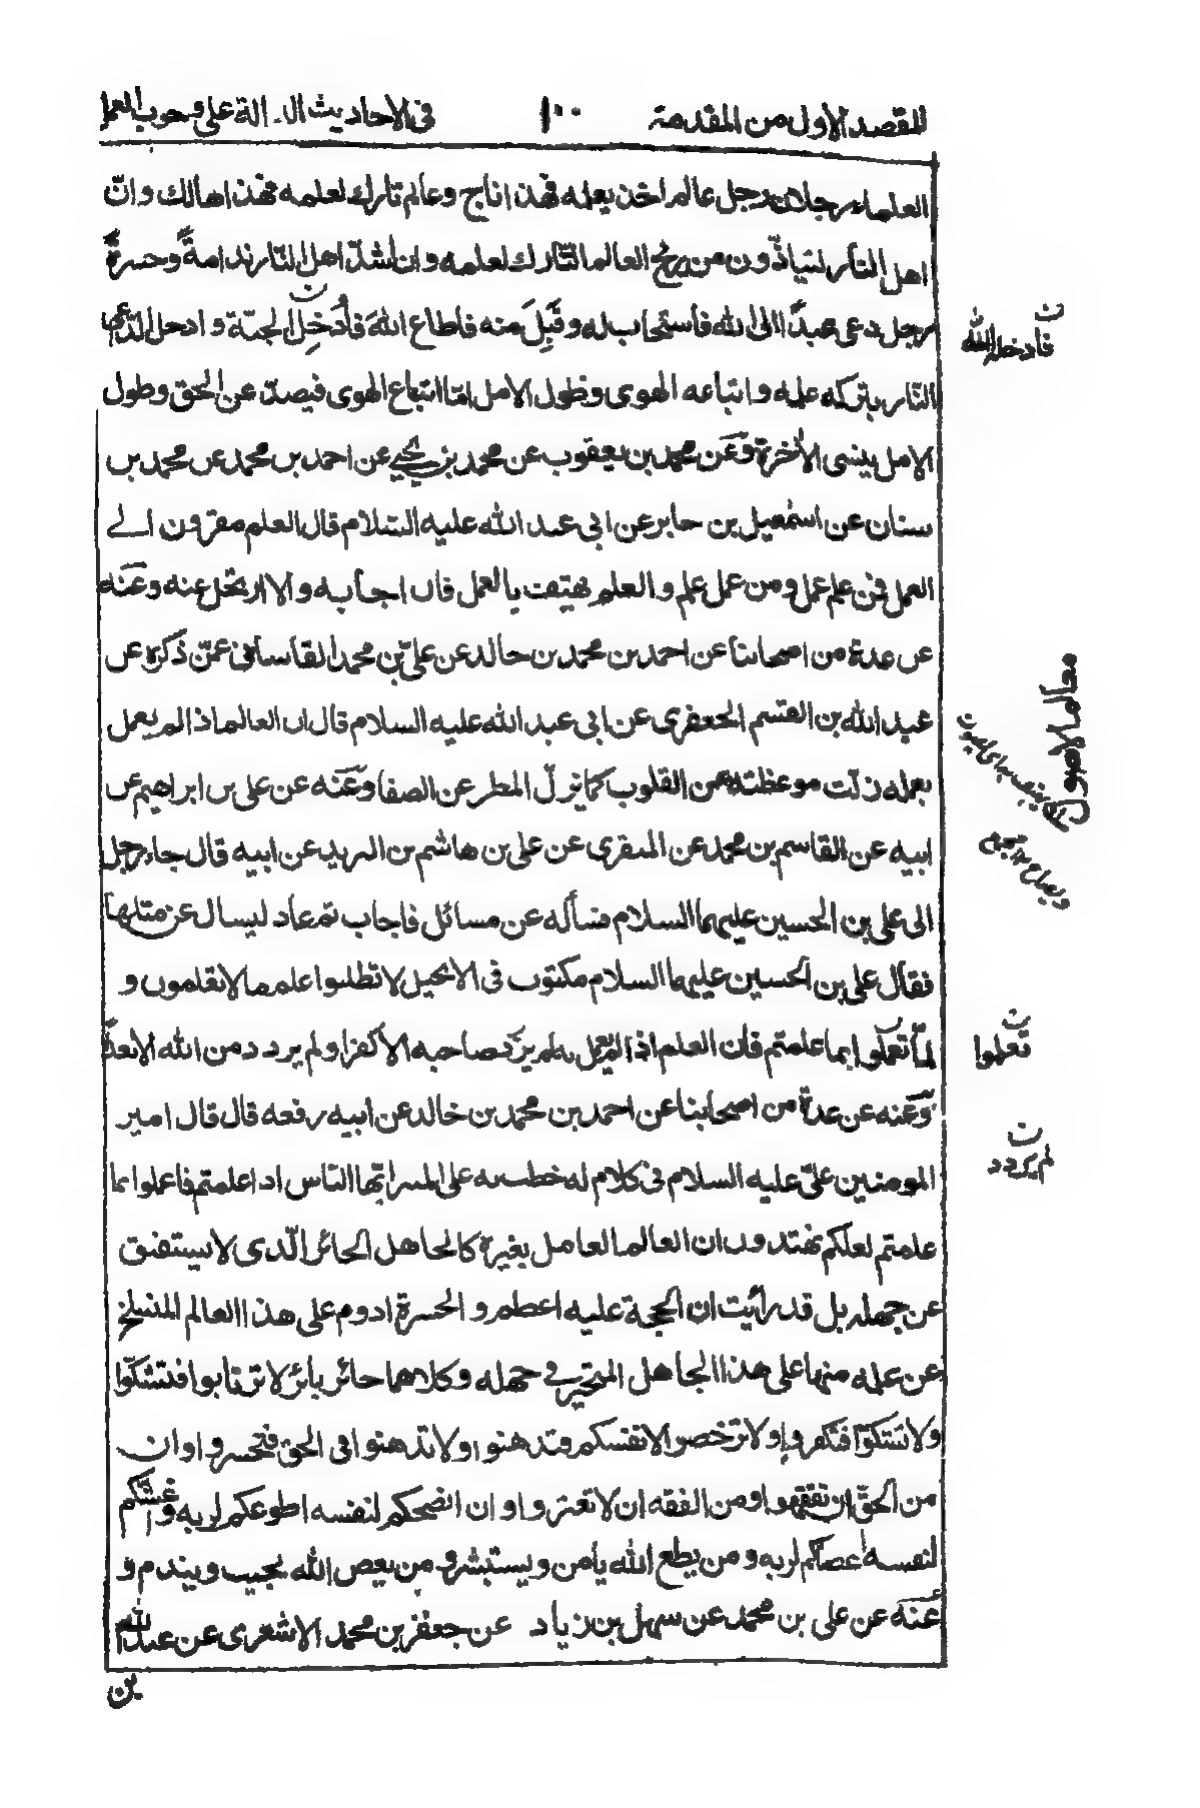 المقصد الأول من المقدمة ١٠٠ فى الاحاديث الدالة على وجوب العمل
العلماء رجلان رجل عالم اخذ بعلمه فهذا ناج وعالم تارك لعلمه فهذا هالك وانّ
اهل النار ليتأذّون من ريح العالم التّارك لعلمه وان أشدّ اهل النّار ندامةً وحسرةً
رجل دعى عبدًا الى الله فاستجاب له وقَبِلَ منه فاطاع اللهَ فأُدخِل الجنّة وادخل الدّاعى
النّار بتركه علمه واتباعه الهوى وطول الامل امّا اتباع الهوى فيصدّ عن الحق وطول
الامل ينسى الأخرة وعن محمد بن يعقوب عن محمد بن يحيى عن احمد بن محمد عن محمد بن
سنان عن اسمعيل بن جابر عن ابى عبد الله عليه السّلام قال العلم مقرون الى
العمل فمن علم عمل ومن عمل علم والعلم يهتف بالعمل فان اجابه والا ارتحل عنه وعنه
عن عدة من اصحابنا عن احمد بن محمد بن خالد عن علىّ بن محمد القاسانى عمّن ذكره عن
عبد الله بن القسم الجعفرى عن ابى عبد الله عليه السلام قال ان العالم اذا لم يعمل
بعلمه زلت موعظته عن القلوب كما يزلّ المطر عن الصفا وعنه عن على بن ابراهيم عن
ابيه عن القاسم بن محمد عن المنقرى عن على بن هاشم بن البريد عن ابيه قال جاء رجل
الى على بن الحسين عليهما السلام فسأله عن مسائل فاجاب ثم عاد ليسال عن مثلها
فقال على بن الحسين عليهما السلام مكتوب فى الانجيل لا تطلبوا علم ما لا تعلمون و
لمّا تعملوا بما علمتم فان العلم اذا لم يعمل به لم يزد صاحبه الا كفرا ولم يردد من الله الا بعدًا
وعنه عن عدة من اصحابنا عن احمد بن محمد بن خالد عن ابيه رفعه قال قال امير
المومنين علىّ عليه السلام فى كلام له خطب به على المنبر ايّها النّاس اذا علمتم فاعملوا بما
علمتم لعلكم تهتدون ان العالم العامل بغيره كالجاهل الحائر الّذى لا يستفيق
عن جهله بل قد رأيت ان الحجة عليه اعظم والحسرة ادوم على هذا العالم المنسلخ
عن علمه منها على هذا الجاهل المتحيّر فى جهله وكلاهما حائر بائر لا ترتابوا فتشكّوا
ولا تشكوّا فتكفروا ولا ترخصوا لانفسكم فتدهنوا ولا تدهنوا فى الحق فتخسروا وان
من الحقّ ان تفقهوا ومن الفقه ان لا تغتروا وان انصحكم لنفسه اطوعكم لربه وغشّكم
لنفسه اعصاكم لربه ومن يطع الله يأمن ويستبشر ومن يعص الله يخيب ويندم و
عنه عن على بن محمد عن سهل بن زياد عن جعفر بن محمد الاشعرى عن عبد الله
بن
ن
فادخله الله
معالم الاصول
ن
تعلموا
ن
لم يردد